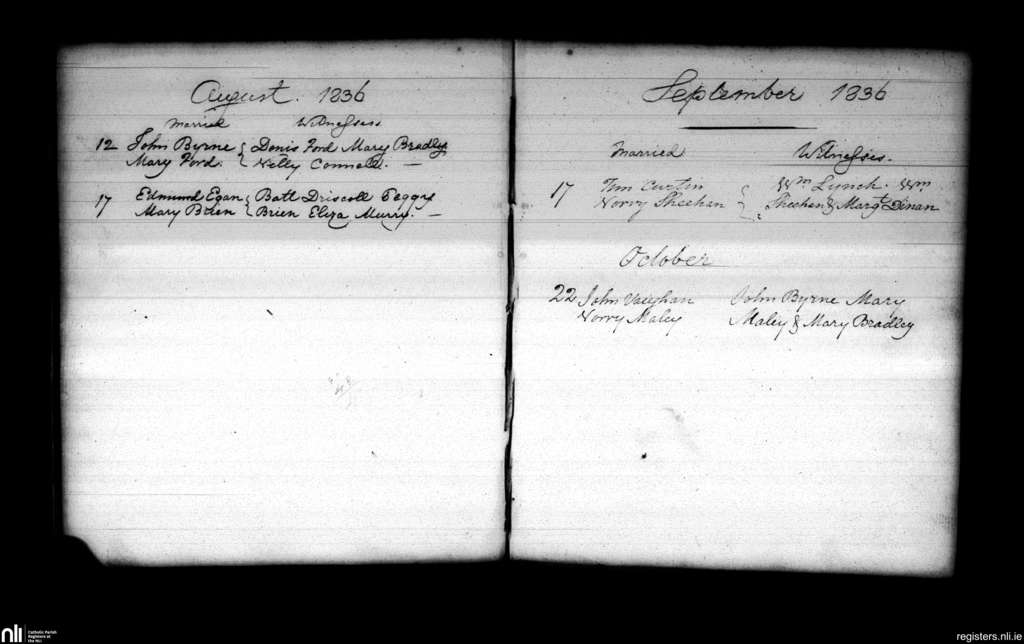 August. 1836
Married Witnesses
12 John Byrne { Denis Ford Mary Bradley
Mary Ford. { Nelly Connell. —
17 Edmund Egan { Batt Driscoll Peggy
Mary Brien { Brien Eliza Murry. —
September 1836
Married Witnesses.
17 Tim Curtin { Wm Lynch. Wm
Norry Sheehan { Sheehan & Margt Dinan
October
22 John Vaughan John Byrne Mary
Norry Maley Maley & Mary Bradley
nli Catholic Parish
Registers at
the NLI
registers.nli.ie